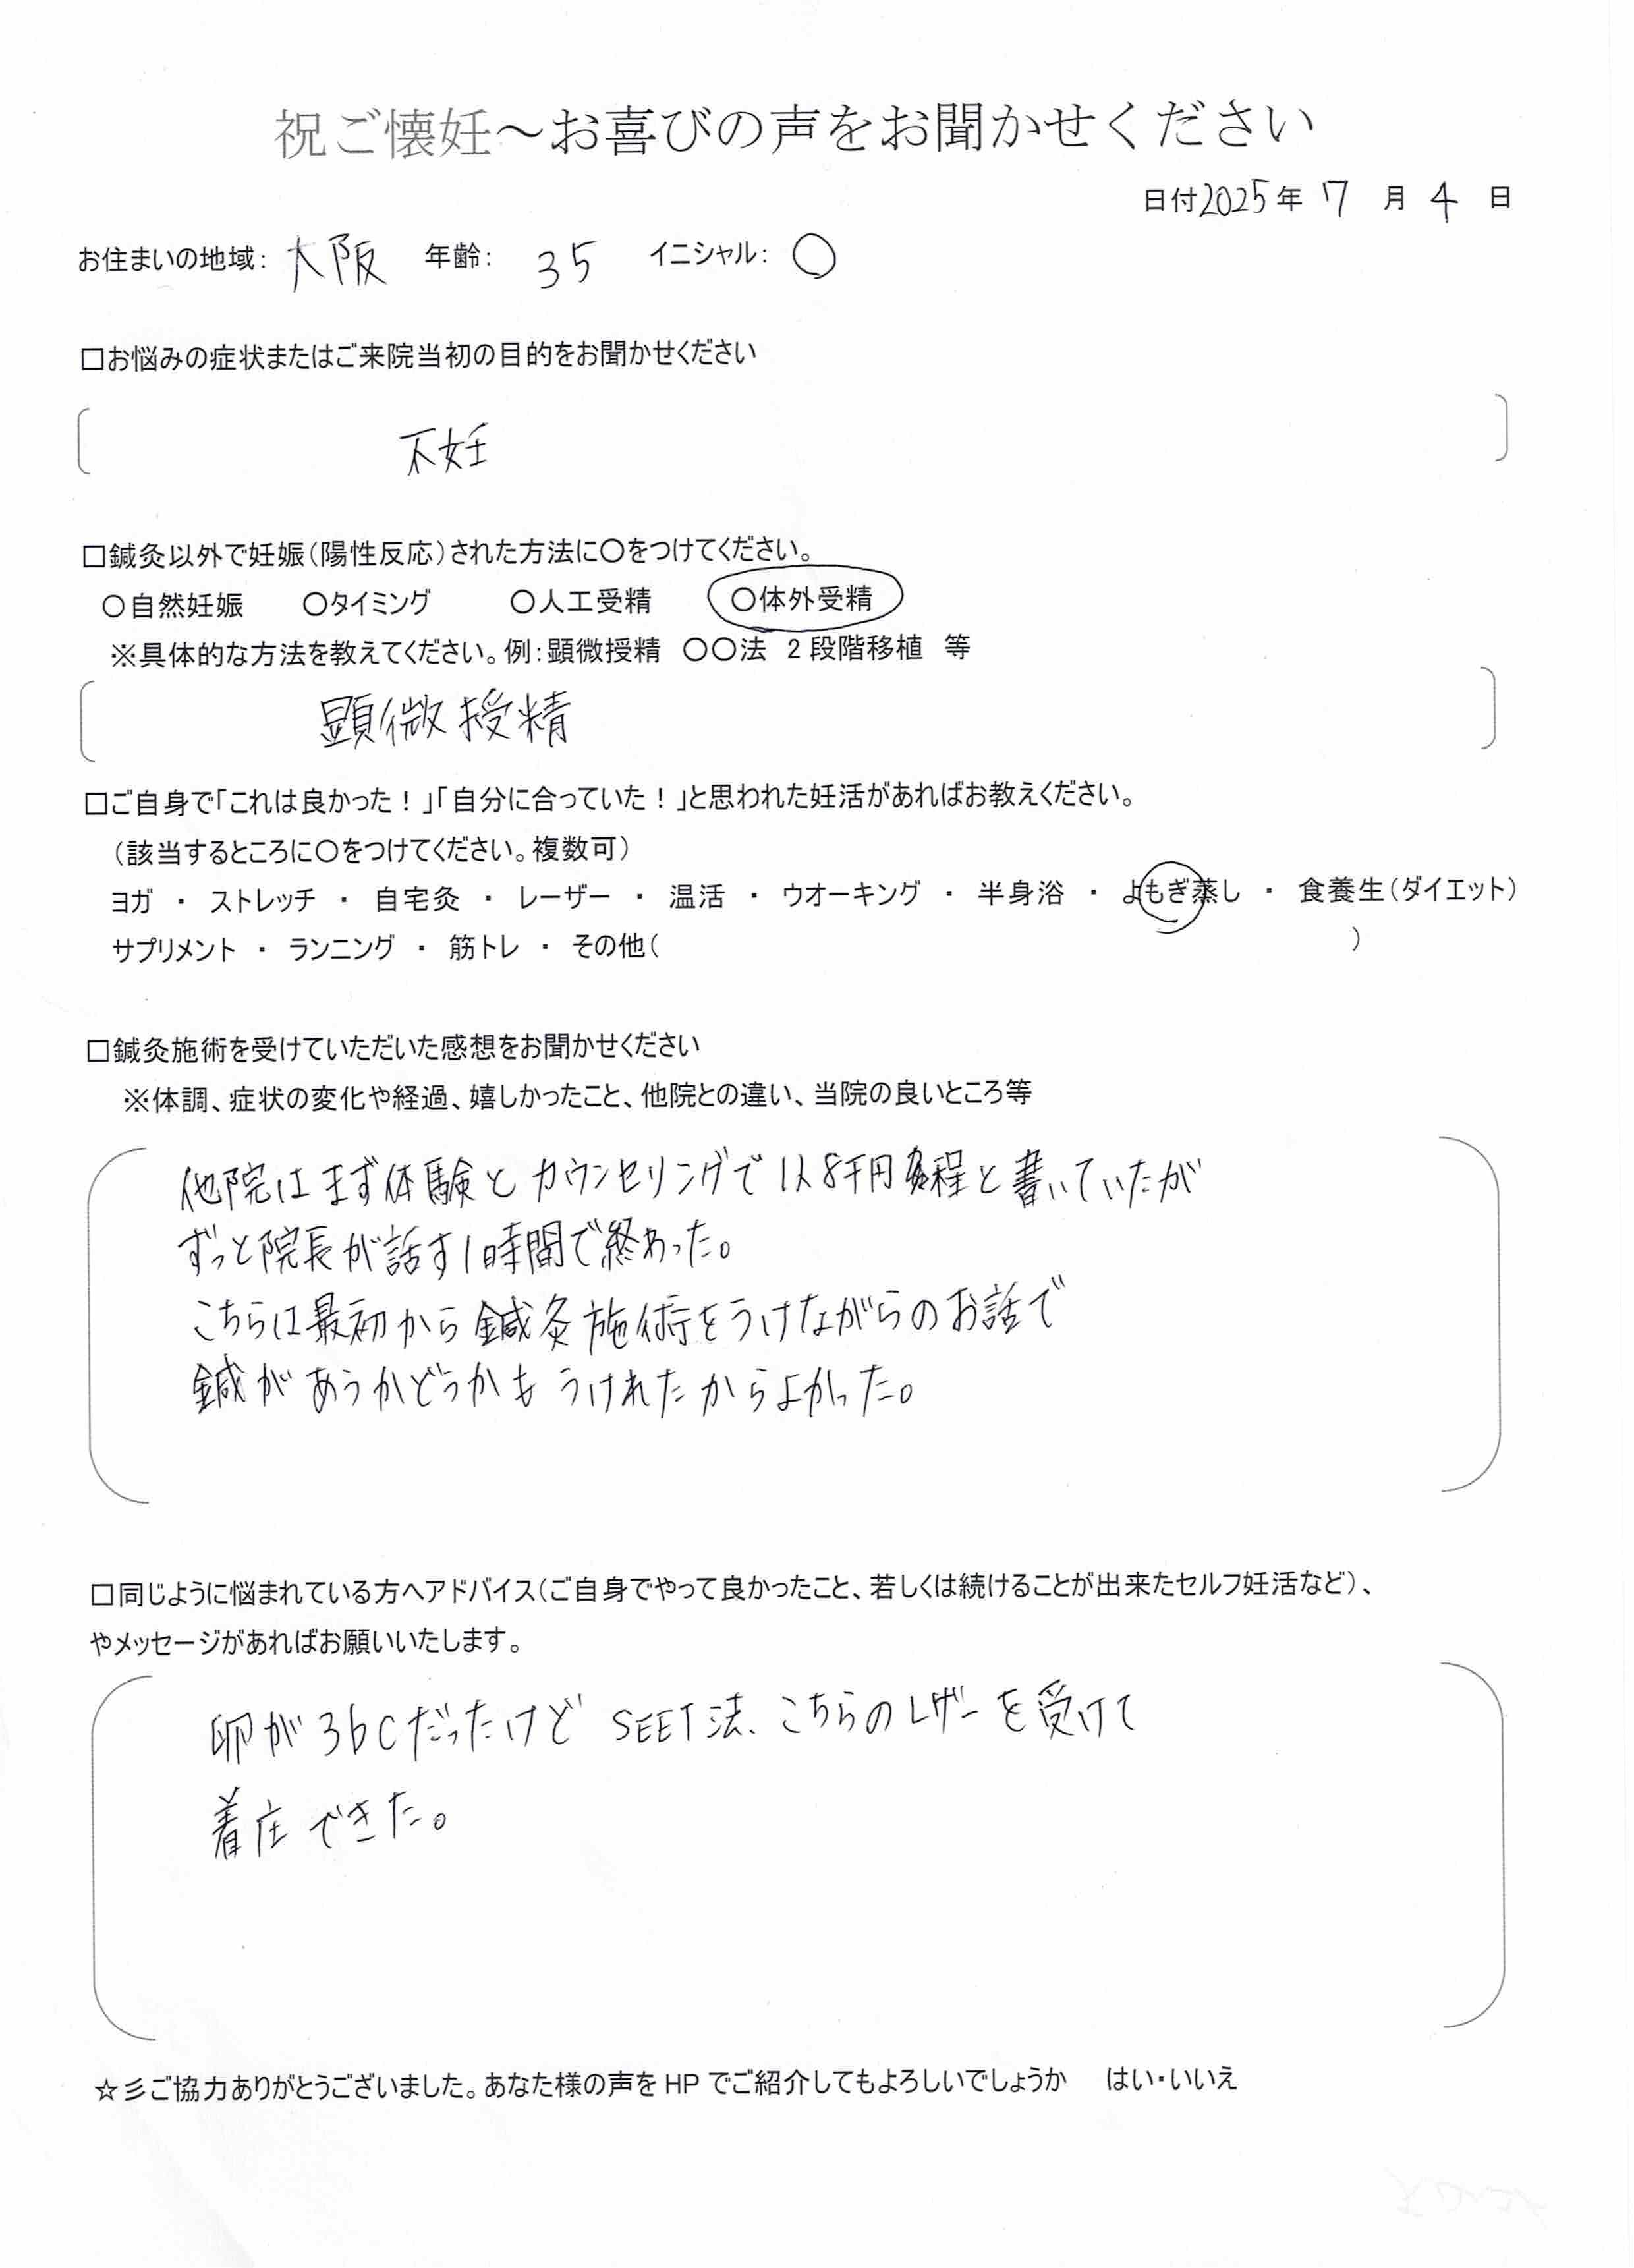 祝ご懐妊～お喜びの声をお聞かせください
日付2025年 7 月 4 日
お住まいの地域： 大阪 年齢： 35 イニシャル： O
□お悩みの症状またはご来院当初の目的をお聞かせください
不妊
□鍼灸以外で妊娠（陽性反応）された方法に〇をつけてください。
〇自然妊娠 〇タイミング 〇人工受精 〇体外受精
※具体的な方法を教えてください。例：顕微授精 〇〇法 2段階移植 等
顕微授精
□ご自身で「これは良かった！」「自分に合っていた！」と思われた妊活があればお教えください。
（該当するところに〇をつけてください。複数可）
ヨガ ・ ストレッチ ・ 自宅灸 ・ レーザー ・ 温活 ・ ウオーキング ・ 半身浴 ・ よもぎ蒸し ・ 食養生（ダイエット）
サプリメント ・ ランニング ・ 筋トレ ・ その他（ ）
□鍼灸施術を受けていただいた感想をお聞かせください
※体調、症状の変化や経過、嬉しかったこと、他院との違い、当院の良いところ等
他院はまず体験とカウンセリングで 8千円程と書いていたが
ずっと院長が話す1時間で終わった。
こちらは最初から鍼灸施術をうけながらのお話で
鍼があうかどうかもうけれたからよかった。
□同じように悩まれている方へアドバイス（ご自身でやって良かったこと、若しくは続けることが出来たセルフ妊活など）、
やメッセージがあればお願いいたします。
卵が3bCだったけど SEET法、こちらのレザーを受けて
着床できた。
☆彡ご協力ありがとうございました。あなた様の声をHPでご紹介してもよろしいでしょうか はい・いいえ